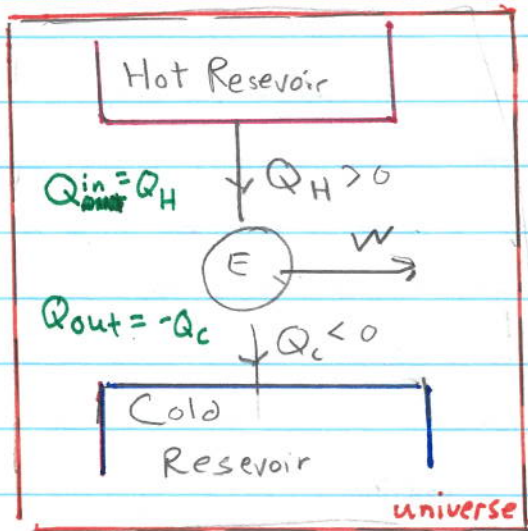 Hot Resevoir
Qin = QH
QH > 0
E
W
Qout = -Qc
Qc < 0
Cold
Resevoir
universe